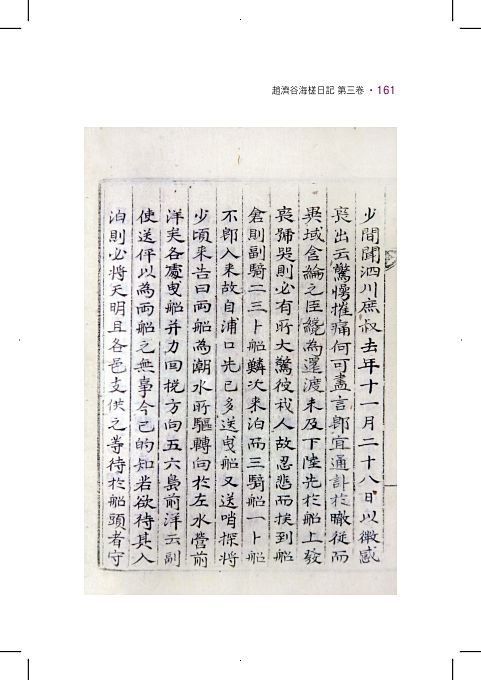 趙濟谷海槎日記 第三卷 · 161
少間聞泗川庶叔去年十一月二十八日以微感
喪出云驚愕摧痛何可盡言卽宜通訃於轍從而
異域含綸之臣纔為還渡未及下陸先於船上發
喪號哭則必有所大驚彼我人故忍悲而挨到船
倉則副騎二三卜船鱗次来泊而三騎船一卜船
不卽入来故自浦口先已多送曳船又送哨探將
少頃来告曰兩船為潮水所驅轉向於左水營前
洋矣各處曳船并力回挽方向五六島前洋云副
使送伻以為兩船之無事今已的知若欲待其入
泊則必將天明且各邑支供之等待於船頭者守